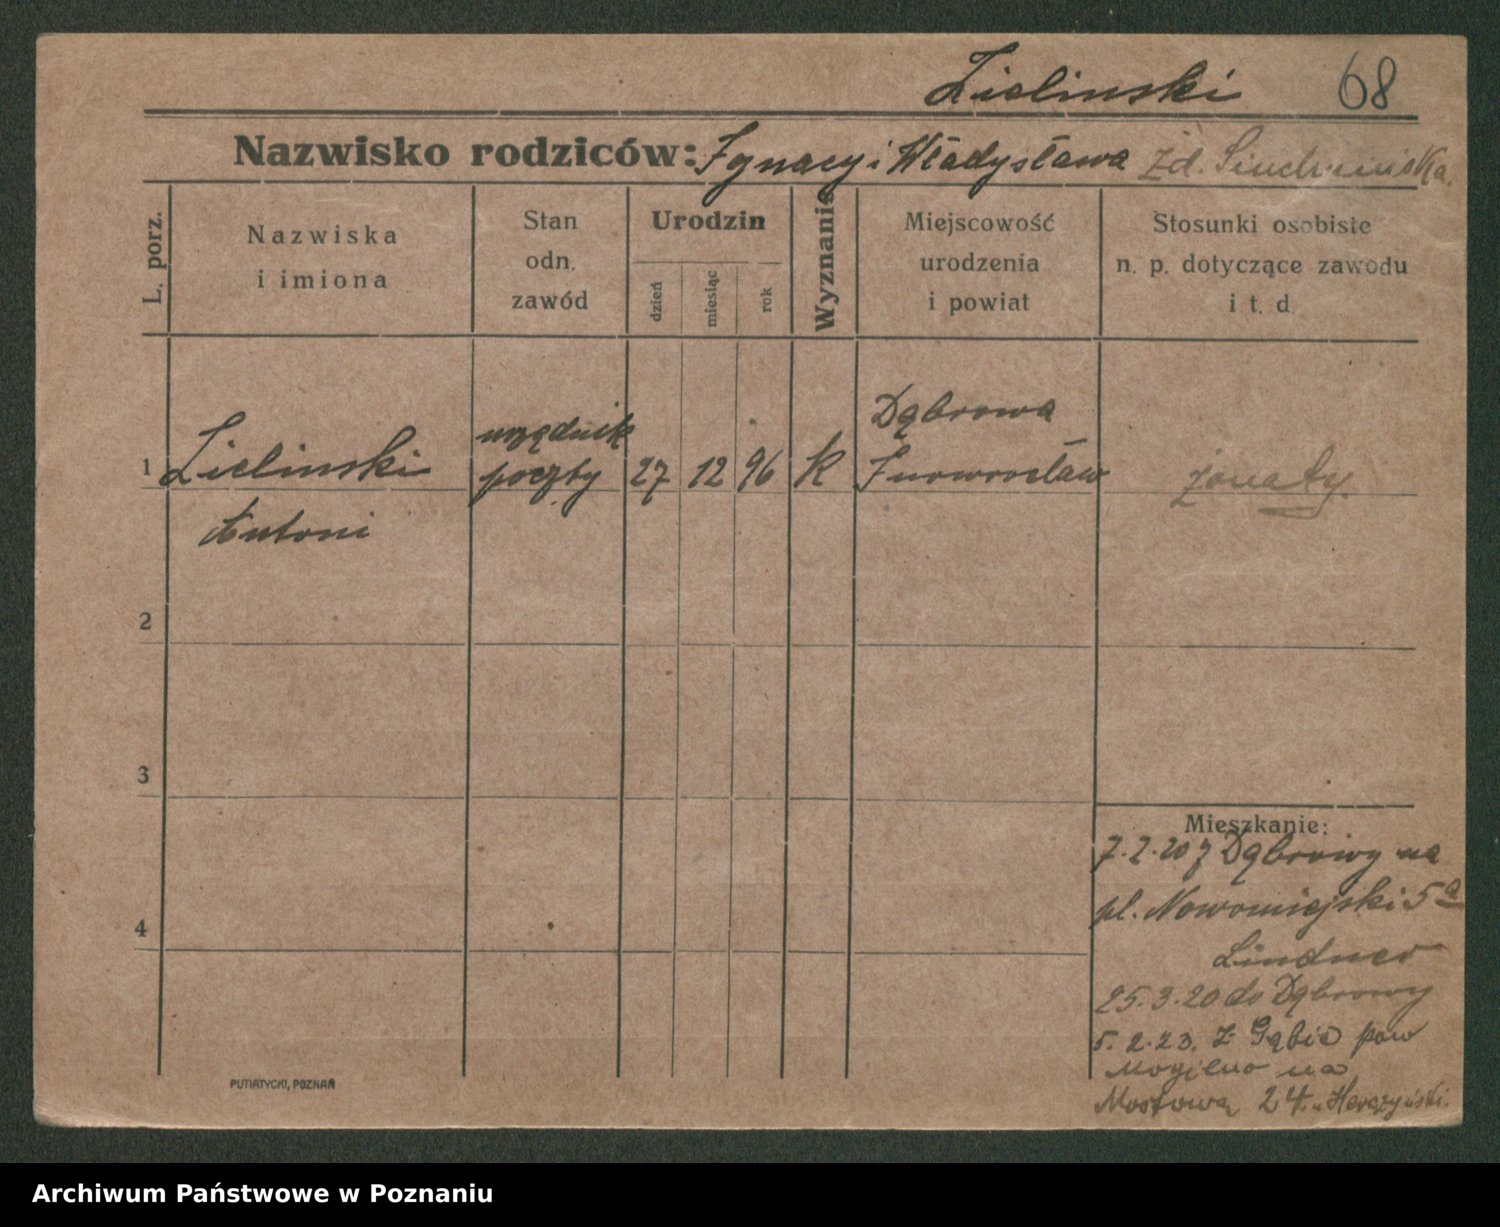 Zielinski 68
Nazwisko rodziców: Ignacy i Władysława zd.
L. porz.
Nazwiska
i imiona
Stan
odn.
zawód
Urodzin
dzień
miesiąc
rok
Wyznanie
Miejscowość
urodzenia
i powiat
Stosunki osobiste
n. p. dotyczące zawodu
i t. d.
urzędnik Dąbrowa
1 Zielinski poczty 27 12 96 k Inowrocław żonaty.
Antoni
2
3
4
Mieszkanie:
7.2.20 z Dąbrowy na
pl. Nowomiejski 5a
Lindner
25.3.20 do Dąbrowy
5.2.23. z Gąbic pow
Mogilno na
Mostową 24.
PUTIATYCKI, POZNAŃ
Archiwum Państwowe w Poznaniu